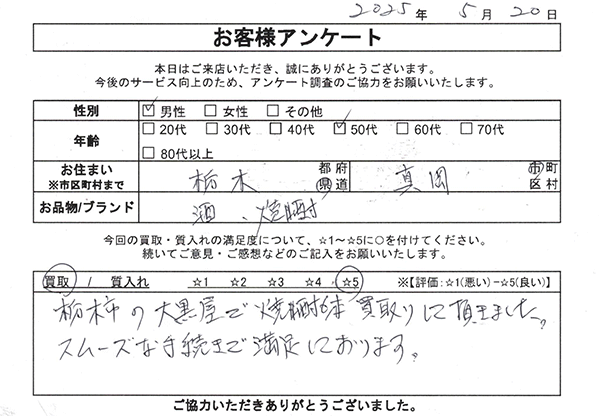 2025年 5月 20日
お客様アンケート
本日はご来店いただき、誠にありがとうございます。
今後のサービス向上のため、アンケート調査のご協力をお願いいたします。
性別 ☑男性 □女性 □その他
年齢 □20代 □30代 □40代 ☑50代 □60代 □70代
□80代以上
お住まい ※市区町村まで 栃木 都府県道 真岡 市町区村
お品物/ブランド 酒、焼酎
今回の買取・質入れの満足度について、☆1～☆5に○を付けてください。
続いてご意見・ご感想などのご記入をお願いいたします。
買取 / 質入れ ☆1 ☆2 ☆3 ☆4 ☆5 ※【評価:☆1(悪い)－☆5(良い)】
栃木市の大黒屋で焼酎 買取りして頂きました。
スムーズな手続きで満足しております。
ご協力いただきありがとうございました。